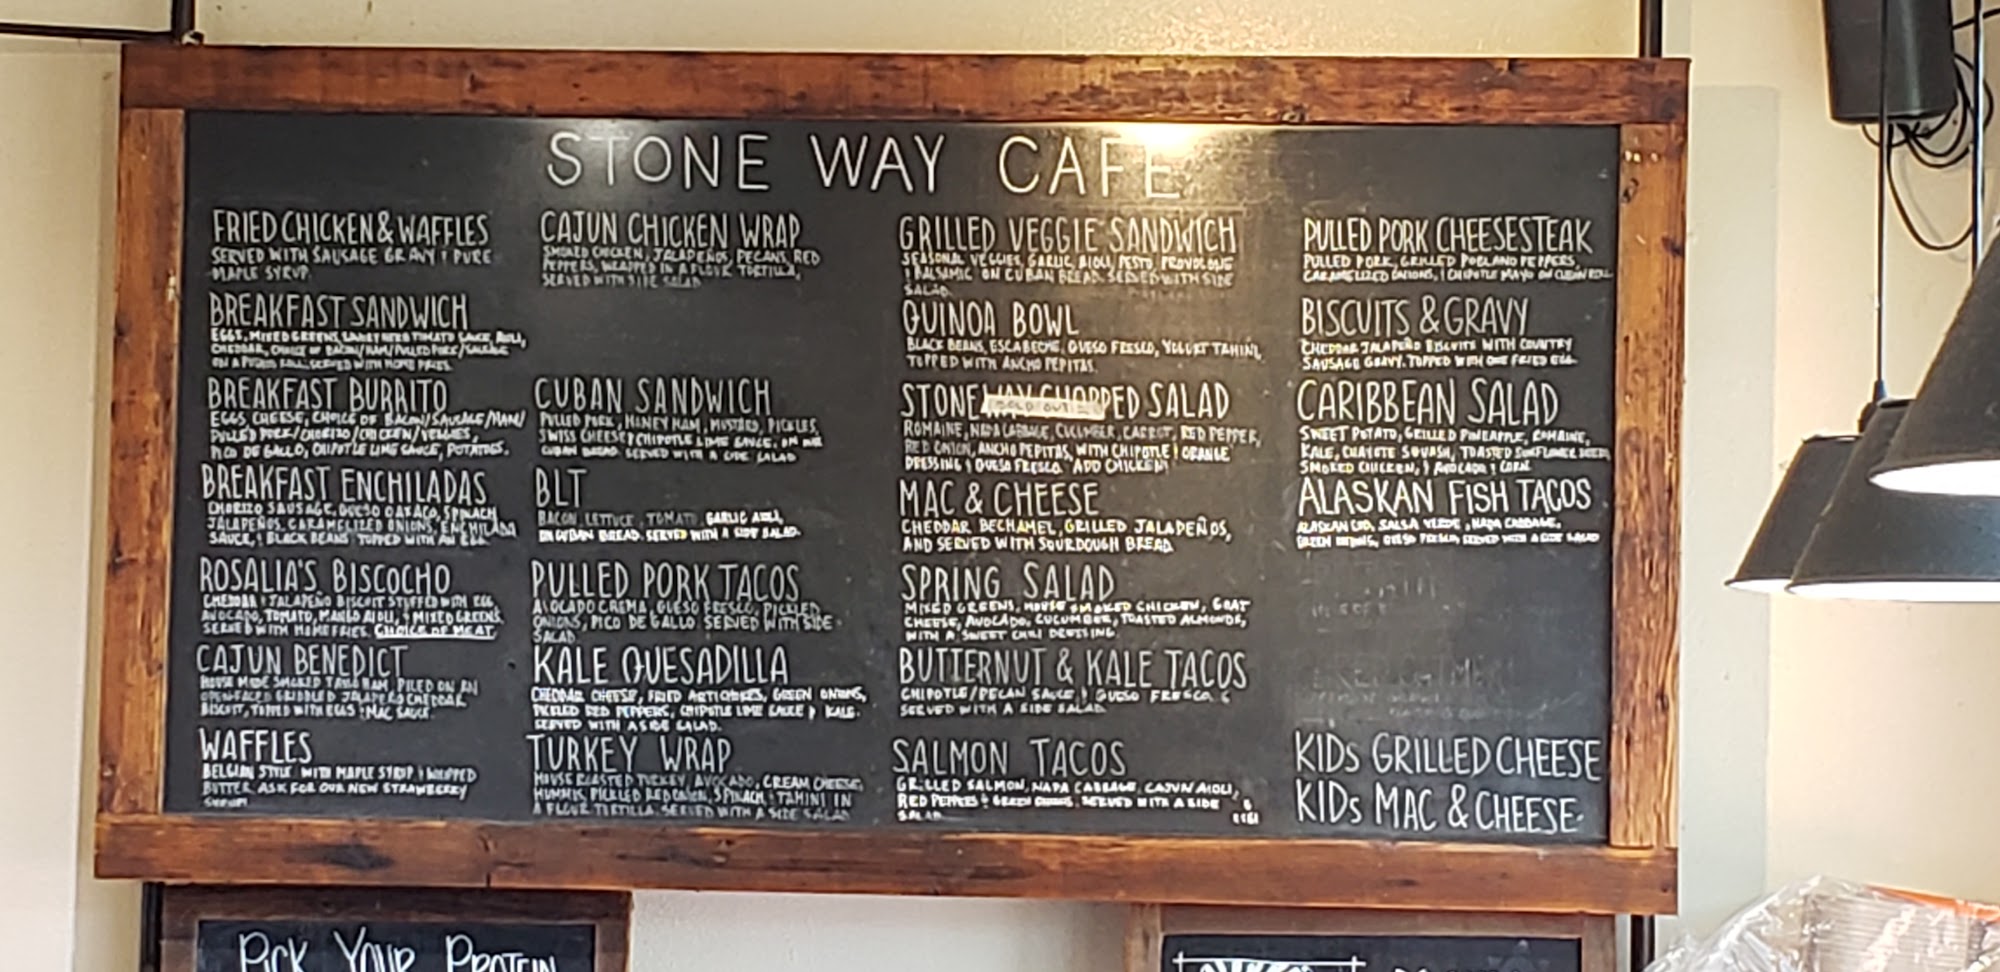 STONE WAY CAFE
FRIED CHICKEN & WAFFLES
SERVED WITH SAUSAGE GRAVY & PURE
MAPLE SYRUP.
BREAKFAST SANDWICH
EGGS, MIXED GREENS, TOMATO SAUCE, AIOLI,
CHEDDAR, CHOICE OF BACON/HAM/PULLED PORK/SAUSAGE
ON A POTATO ROLL. SERVED WITH HOME FRIES.
BREAKFAST BURRITO
EGGS, CHEESE, CHOICE OF BACON/SAUSAGE/HAM/
PULLED PORK/CHORIZO/CHICKEN/VEGGIES,
PICO DE GALLO, CHIPOTLE LIME SAUCE, POTATOES.
BREAKFAST ENCHILADAS
CHORIZO SAUSAGE, QUESO OAXACO, SPINACH
JALAPEÑOS, CARAMELIZED ONIONS, ENCHILADA
SAUCE, & BLACK BEANS TOPPED WITH AN EGG.
ROSALIA'S BISCOCHO
CHEDDAR & JALAPEÑO BISCUIT STUFFED WITH EGG,
AVOCADO, TOMATO, MANGO AIOLI, & MIXED GREENS.
SERVED WITH HOME FRIES. CHOICE OF MEAT.
CAJUN BENEDICT
HOUSE MADE SMOKED TASSO HAM, PILED ON AN
OPEN-FACED GRIDDLED JALAPEÑO CHEDDAR
BISCUIT, TOPPED WITH EGGS & MAC SAUCE.
WAFFLES
BELGIAN STYLE WITH MAPLE SYRUP & WHIPPED
BUTTER. ASK FOR OUR NEW STRAWBERRY
SYRUP!
CAJUN CHICKEN WRAP
SMOKED CHICKEN, JALAPEÑOS, PECANS, RED
PEPPERS, WRAPPED IN A FLOUR TORTILLA,
SERVED WITH SIDE SALAD
CUBAN SANDWICH
PULLED PORK, HONEY HAM, MUSTARD, PICKLES,
SWISS CHEESE & CHIPOTLE LIME SAUCE. ON
CUBAN BREAD SERVED WITH A SIDE SALAD
BLT
BACON, LETTUCE, TOMATO GARLIC AIOLI,
ON CUBAN BREAD. SERVED WITH A SIDE SALAD.
PULLED PORK TACOS
AVOCADO CREMA, QUESO FRESCO, PICKLED
ONIONS, PICO DE GALLO SERVED WITH SIDE
SALAD
KALE QUESADILLA
CHEDDAR CHEESE, FRIED ARTICHOKES, GREEN ONIONS,
PICKLED RED PEPPERS, CHIPOTLE LIME SAUCE & KALE.
SERVED WITH A SIDE SALAD.
TURKEY WRAP
HOUSE ROASTED TURKEY, AVOCADO, CREAM CHEESE,
HUMMUS, PICKLED RED ONION, SPINACH & TAHINI IN
A FLOUR TORTILLA. SERVED WITH A SIDE SALAD
GRILLED VEGGIE SANDWICH
SEASONAL VEGGIES, GARLIC AIOLI, PESTO, PROVOLONE
& BALSAMIC ON CUBAN BREAD. SERVED WITH SIDE
SALAD.
QUINOA BOWL
BLACK BEANS, ESCABECHE, QUESO FRESCO, YOGURT TAHINI,
TOPPED WITH ANCHO PEPITAS.
STONEWAY CHOPPED SALAD
SOLD OUT
ROMAINE, NAPA CABBAGE, CUCUMBER, CARROT, RED PEPPER,
RED ONION, ANCHO PEPITAS, WITH CHIPOTLE & ORANGE
DRESSING & QUESO FRESCO. ADD CHICKEN!
MAC & CHEESE
CHEDDAR BECHAMEL, GRILLED JALAPEÑOS,
AND SERVED WITH SOURDOUGH BREAD
SPRING SALAD
MIXED GREENS, HOUSE SMOKED CHICKEN, GOAT
CHEESE, AVOCADO, CUCUMBER, TOASTED ALMONDS,
WITH A SWEET CHILI DRESSING.
BUTTERNUT & KALE TACOS
CHIPOTLE/PECAN SAUCE & QUESO FRESCO &
SERVED WITH A SIDE SALAD.
SALMON TACOS
GRILLED SALMON, NAPA CABBAGE, CAJUN AIOLI,
RED PEPPERS & GREEN ONIONS. SERVED WITH A SIDE
SALAD.
PULLED PORK CHEESESTEAK
PULLED PORK, GRILLED POBLANO PEPPERS,
CARAMELIZED ONIONS, & CHIPOTLE MAYO ON CUBAN ROLL
BISCUITS & GRAVY
CHEDDAR JALAPEÑO BISCUITS WITH COUNTRY
SAUSAGE GRAVY. TOPPED WITH ONE FRIED EGG.
CARIBBEAN SALAD
SWEET POTATO, GRILLED PINEAPPLE, ROMAINE,
KALE, CHAYOTE SQUASH, TOASTED SUNFLOWER SEEDS,
SMOKED CHICKEN, & AVOCADO & CORN
ALASKAN FISH TACOS
ALASKAN COD, SALSA VERDE, NAPA CABBAGE,
GREEN ONIONS, QUESO FRESCO, SERVED WITH A SIDE SALAD
KIDs GRILLED CHEESE
KIDs MAC & CHEESE
PICK YOUR PROTEIN